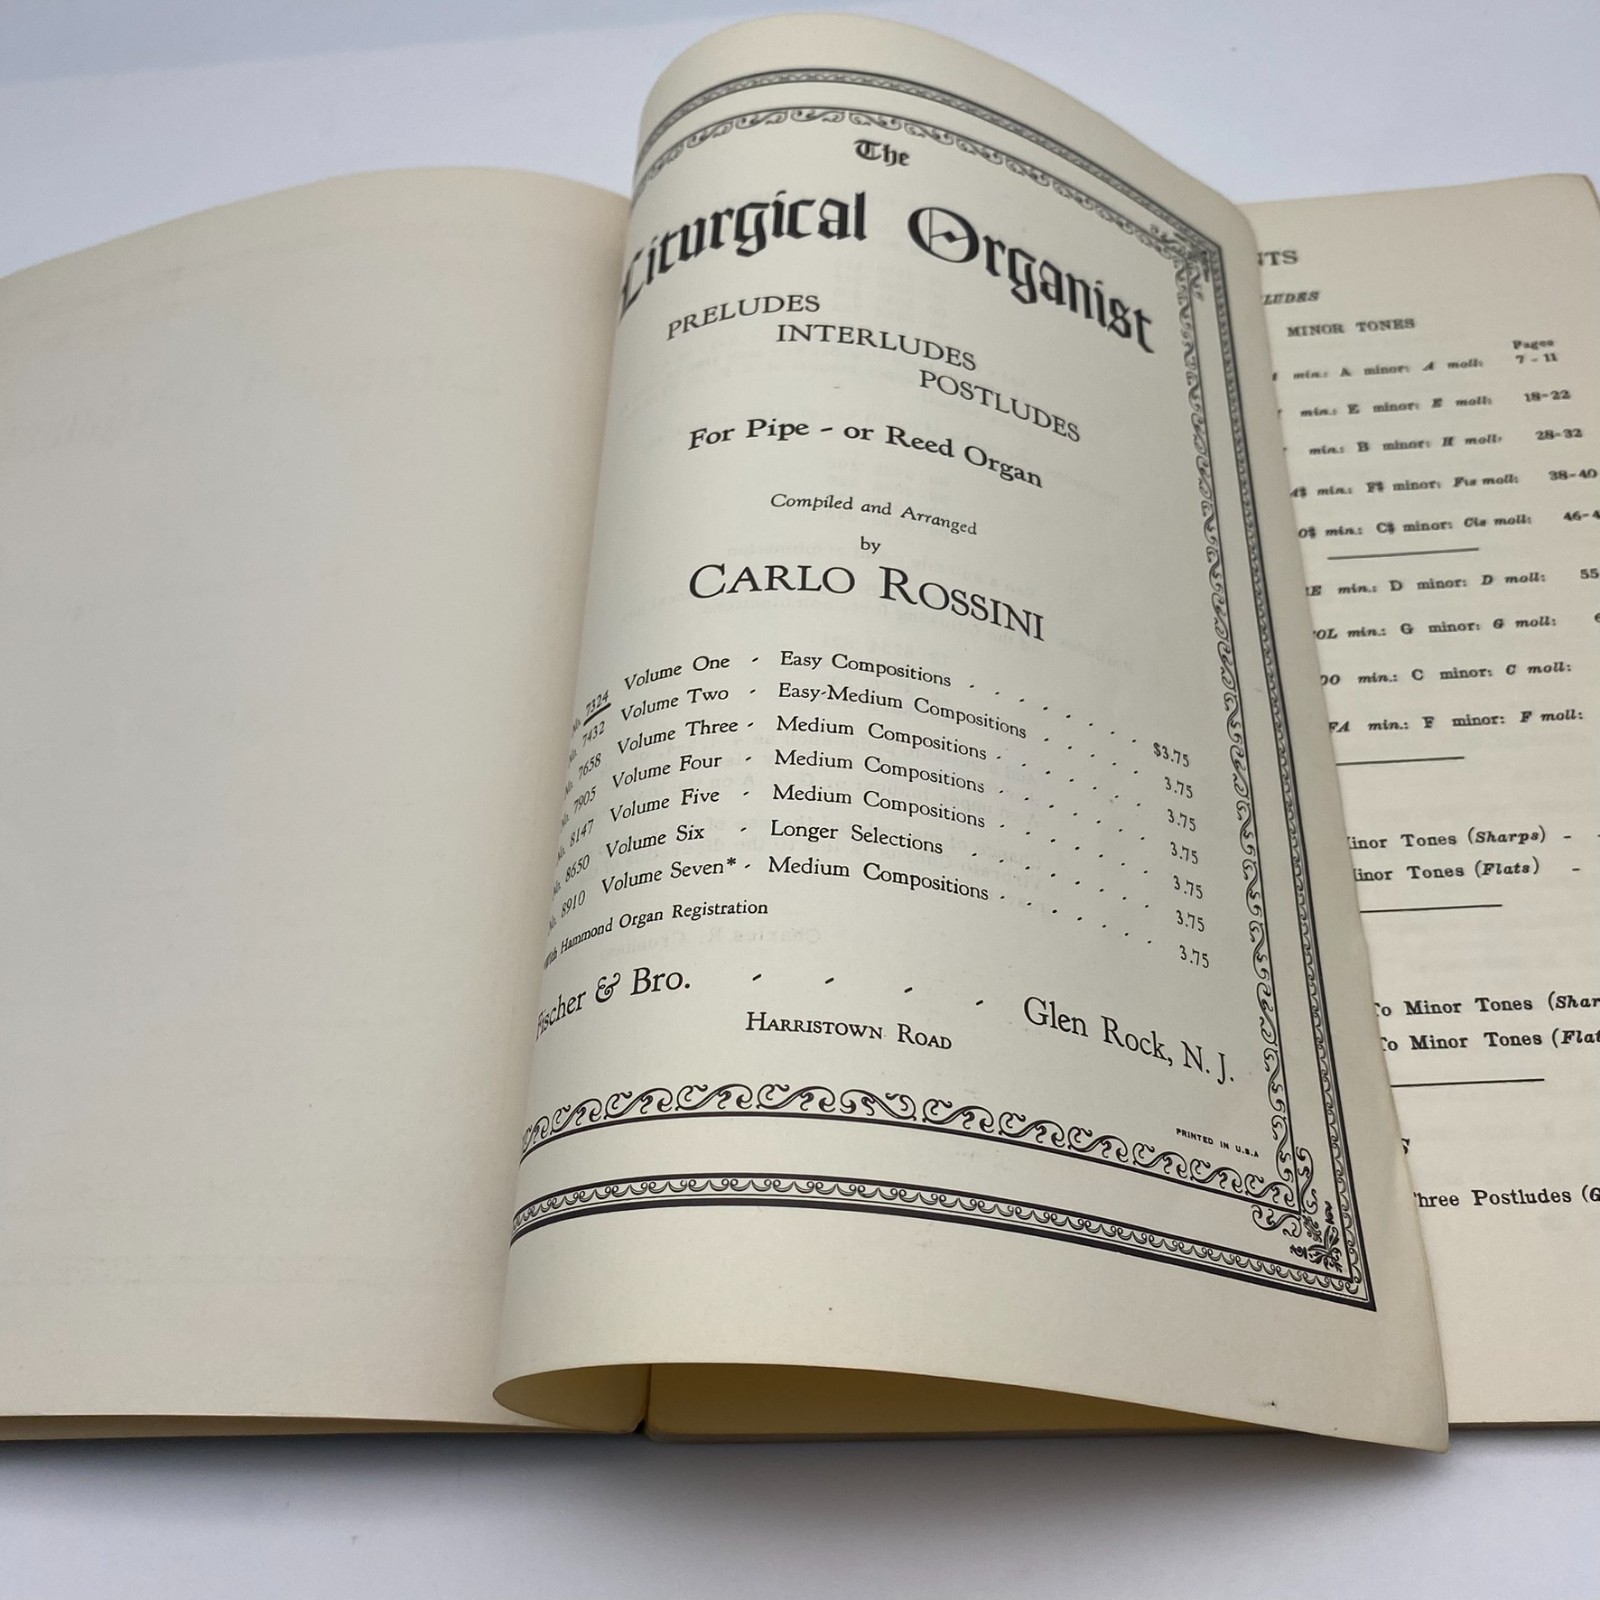 The
Liturgical Organist
PRELUDES
INTERLUDES
POSTLUDES
For Pipe - or Reed Organ
Compiled and Arranged
by
CARLO ROSSINI
No. 7324 Volume One - Easy Compositions . . . . . . $3.75
No. 7432 Volume Two - Easy-Medium Compositions . . . . 3.75
No. 7658 Volume Three - Medium Compositions . . . . . 3.75
No. 7905 Volume Four - Medium Compositions . . . . . 3.75
No. 8147 Volume Five - Medium Compositions . . . . . 3.75
No. 8650 Volume Six - Longer Selections . . . . . . 3.75
No. 8910 Volume Seven* - Medium Compositions . . . . . 3.75
With Hammond Organ Registration
Fischer & Bro. - - - - Glen Rock, N. J.
HARRISTOWN ROAD
PRINTED IN U.S.A
NTS
LUDES
MINOR TONES
Pages
min.: A minor: A moll: 7-11
min.: E minor: E moll: 18-22
min.: B minor: H moll: 28-32
min.: F# minor: Fis moll: 38-40
min.: C# minor: Cis moll: 46-4
RE min.: D minor: D moll: 55
OL min.: G minor: G moll:
DO min.: C minor: C moll:
FA min.: F minor: F moll:
Minor Tones (Sharps) -
Minor Tones (Flats) -
To Minor Tones (Shar
To Minor Tones (Flat
S
Three Postludes (G